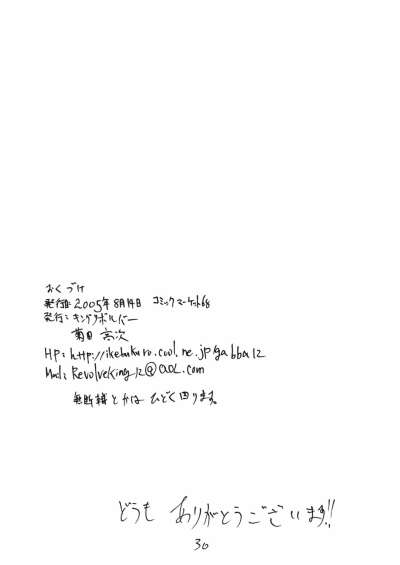 おくづけ
発行日 2005年8月14日 コミックマーケット68
発行: キングリボルバー
菊田 高次
HP: http://ikebukuro.cool.ne.jp/gabba12
Mail: Revolveking_12@aol.com
無断転とかは ひどく困ります。
どうも ありがとうございます!!
30